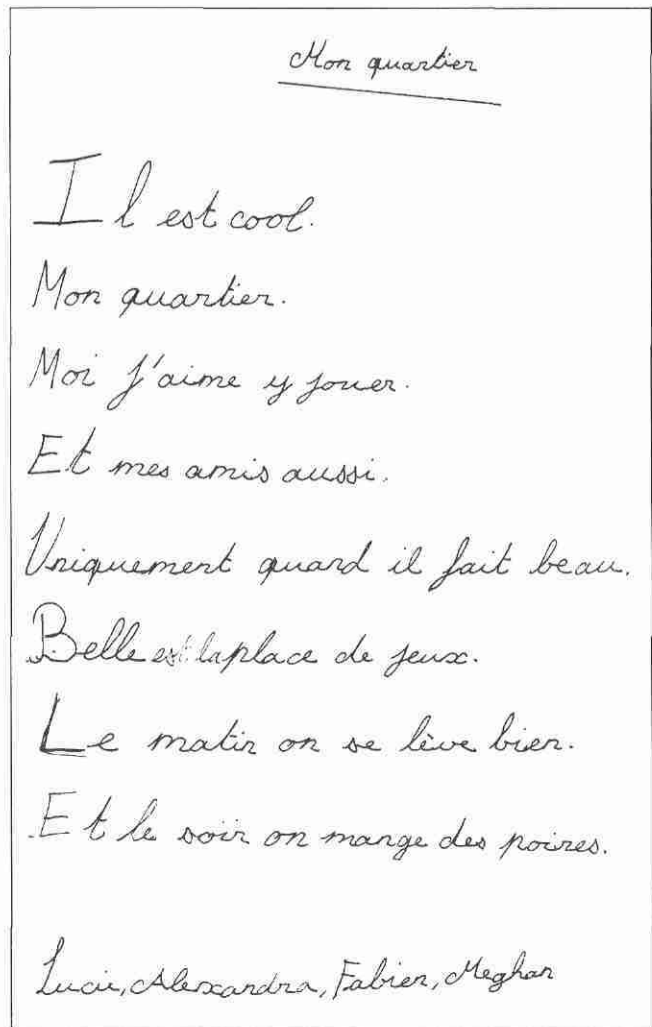 Mon quartier
Il est cool.
Mon quartier.
Moi j'aime y jouer.
Et mes amis aussi.
Uniquement quand il fait beau.
Belle est la place de jeux.
Le matin on se lève bien.
Et le soir on mange des poires.
Lucie, Alexandra, Fabien, Meghan